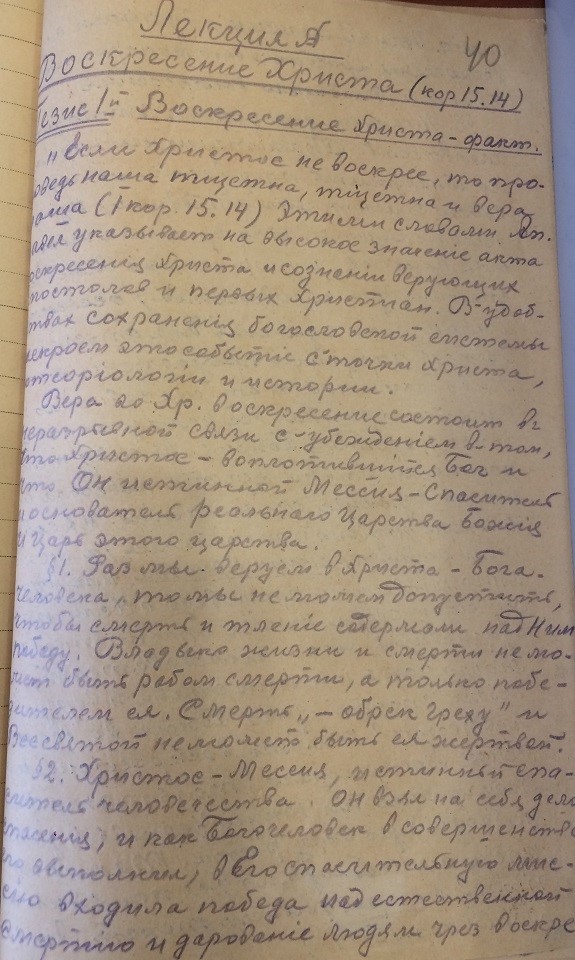 Лекция
40
Воскресение Христа (кор 15.14)
Тезис 1й Воскресение Христа - факт.
„Если Христос не воскрес, то про-
оведь наша тщетна, тщетна и вера
наша (I кор. 15.14) Этими словами Ап.
авел указывает на высокое значение акта
оскресения Христа и сознении верующих
постолов и первых Христиан. В удоб-
ствах сохранения богословской системы
искроем это событіе с точки Христа,
и истории.
Вера во Хр. воскресение состоит в
неразрывной связи с убеждением в том,
что Христос - воплотившійся Бог и
что Он истинной Мессия - Спаситель
и основатель реального Царства Божия
и Царь этого царства.
§1. Раз мы веруем в Христа - Бога-
человека, то мы не можем допустить,
чтобы смерть и тленіе одержали над Ним
победу. Владыка жизни и смерти не мо-
жет быть рабом смерти, а только побе-
дителем ея. Смерть „ - оброк греху" и
Всесвятой не может быть ея жертвой.
§2. Христос - Мессия, истинный спа-
ситель человечества. Он взял на себя дело
спасения, и как Богочеловек в совершенстве
его выполнил, в Его спасительную мис-
сию входила победа над естественной
смертію и дарованіе людям чрез воскре